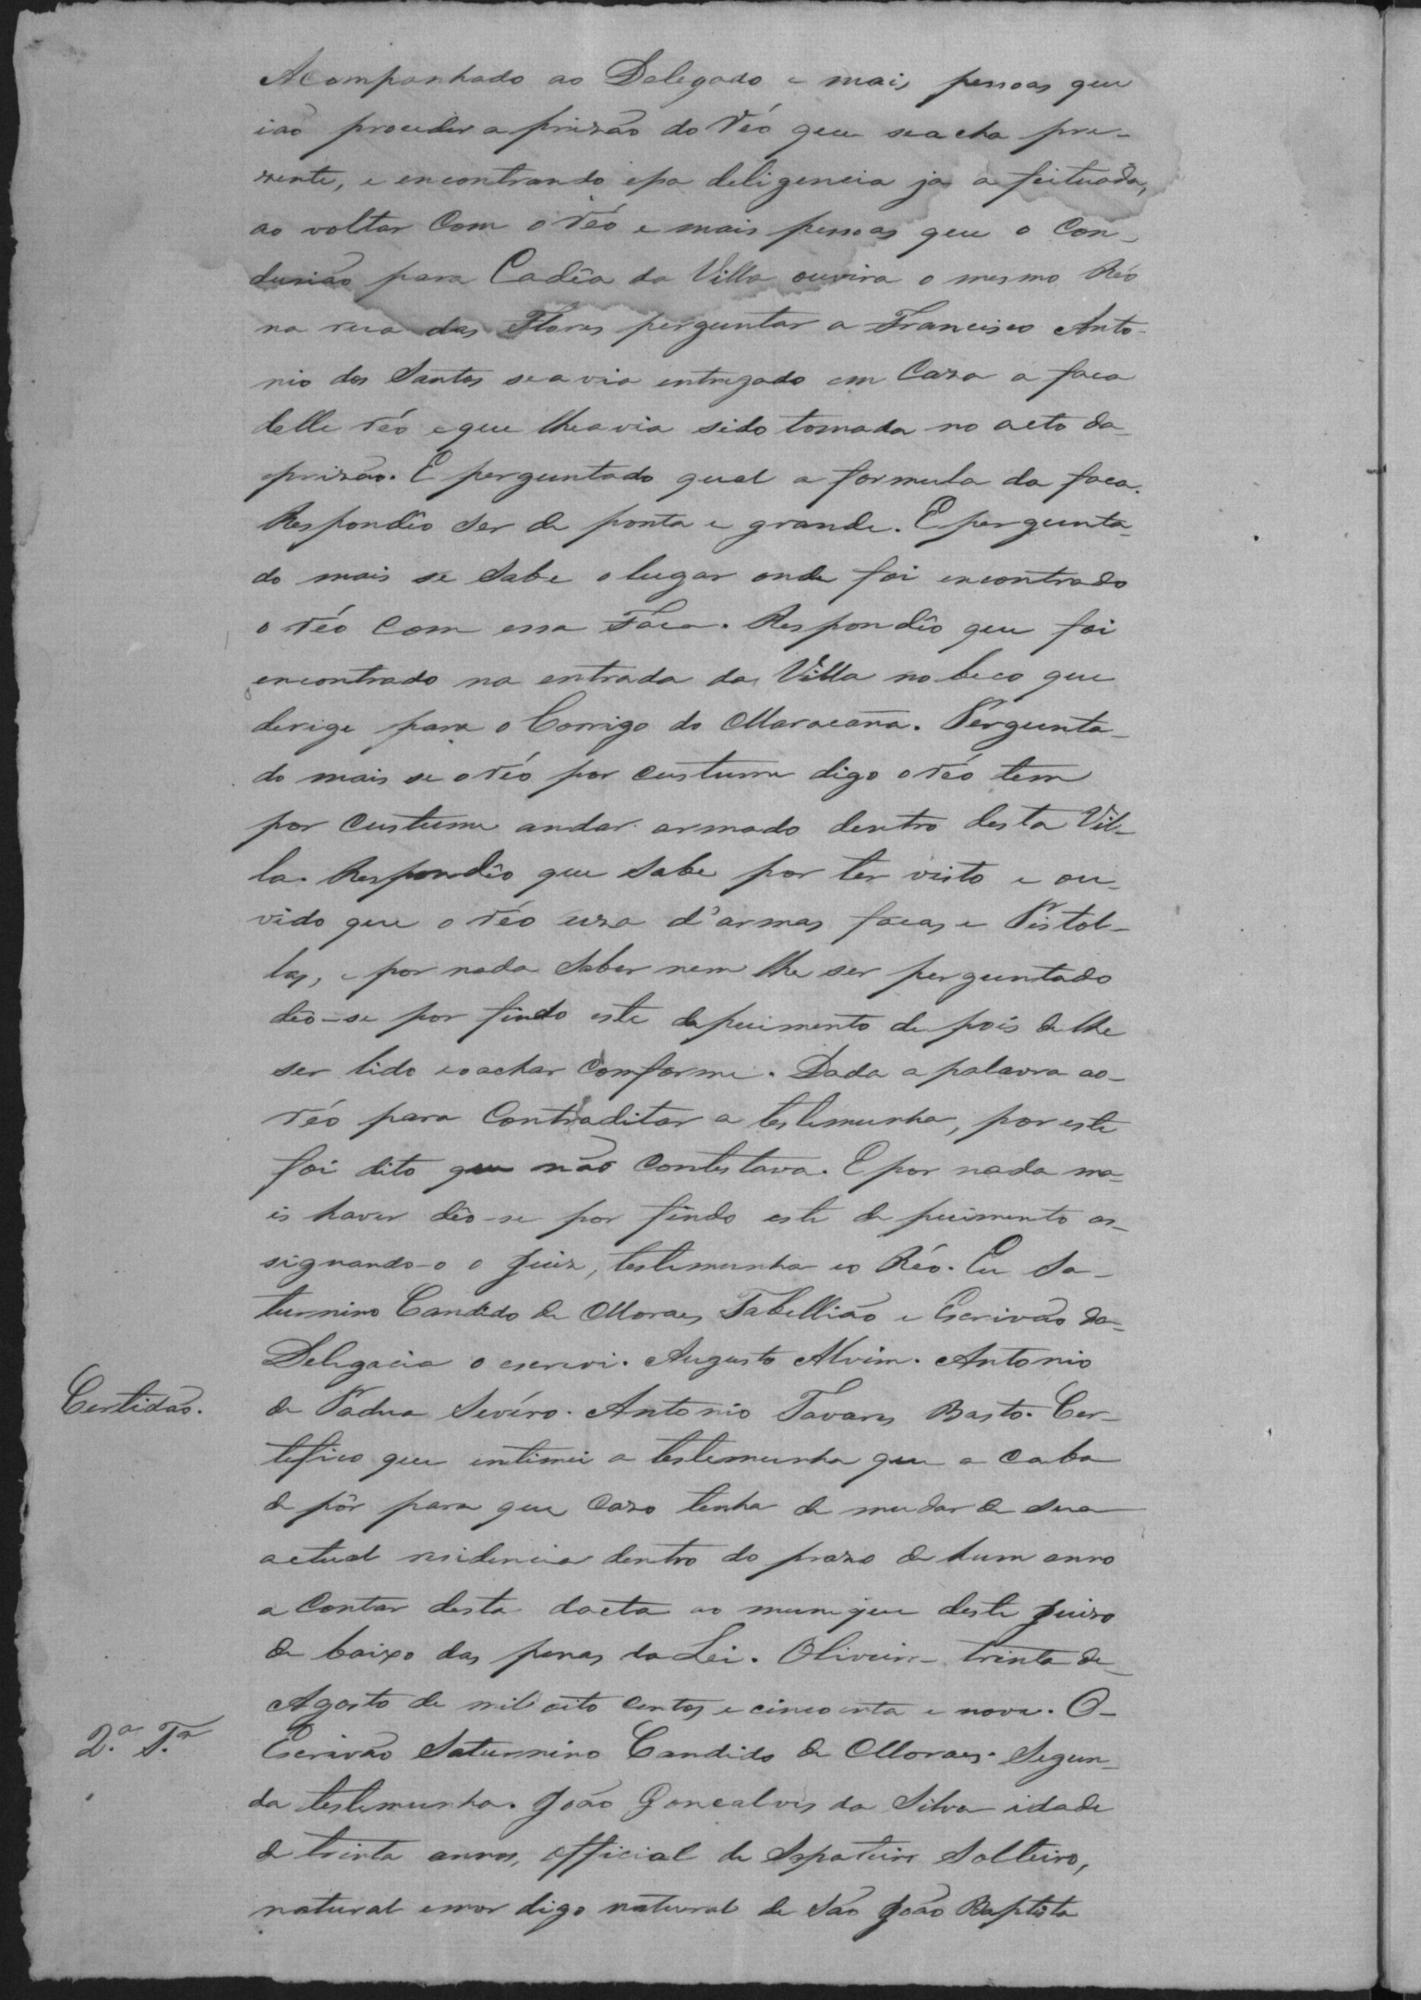 Acompanhado ao Delegado e mais pessoas que
ião proceder a prizão do réo que se acha pre-
zente, e encontrando essa deligencia ja a feituada,
ao voltar Com o réo e mais pessoas que o Con-
dusião para Cadêa da Villa ouvira o mesmo Réo
na rua das Flores perguntar a Francisco Anto-
nio dos Santos se avia entregado em Caza a faca
delle réo e que lhe avia sido tomada no acto da
prizão. E perguntado qual a formula da faca.
Respondêo ser de ponta e grande. E pergunta-
do mais se Sabe o lugar onde foi encontrado
o réo Com essa Faca. Respondêo que foi
encontrado na entrada da Villa no beco que
derige para o Corrigo do Maracaña. Pergunta-
do mais se o réo por custume digo o réo tem
por Custume andar armado dentro desta Vil-
la. Respondêo que Sabe por ter visto e ou-
vido que o réo uza d'armas facas e Pistol-
las, e por nada Saber nem lhe ser perguntado
dêo-se por findo este depuimento de pois de lhe
ser lido e o achar Conforme. Dada a palavra ao-
réo para Contraditar a testemunha, por este
foi dito que não Contestava. E por nada ma-
is haver dêo-se por findo este de puimento as-
signando-o o Juiz, testemunha e o Réo. Eu Sa-
turnino Candido de Moraes Tabellião e Escrivão da-
Delegacia o escrevi. Augusto Alvim. Antonio
Certidão.
de Padua Sevéro. Antonio Tavares Basto. Cer-
tefico que intimei a testemunha que a caba
de pôr para que Cazo tenha de mudar de sua
actual residencia dentro do prazo de hum anno
a Contar desta dacta co munique deste Juizo
de baixo das penas da Lei. Oliveira trinta de
Agosto de mil oito centos e cincoenta e nove. O-
2.ª T.ª
Escrivão Saturnino Candido de Moraes. Segun-
da testemunha. João Goncalves da Silva idade
de trinta annos, official de Sapateiro Solteiro,
natural e mor digo natural de São João Baptista